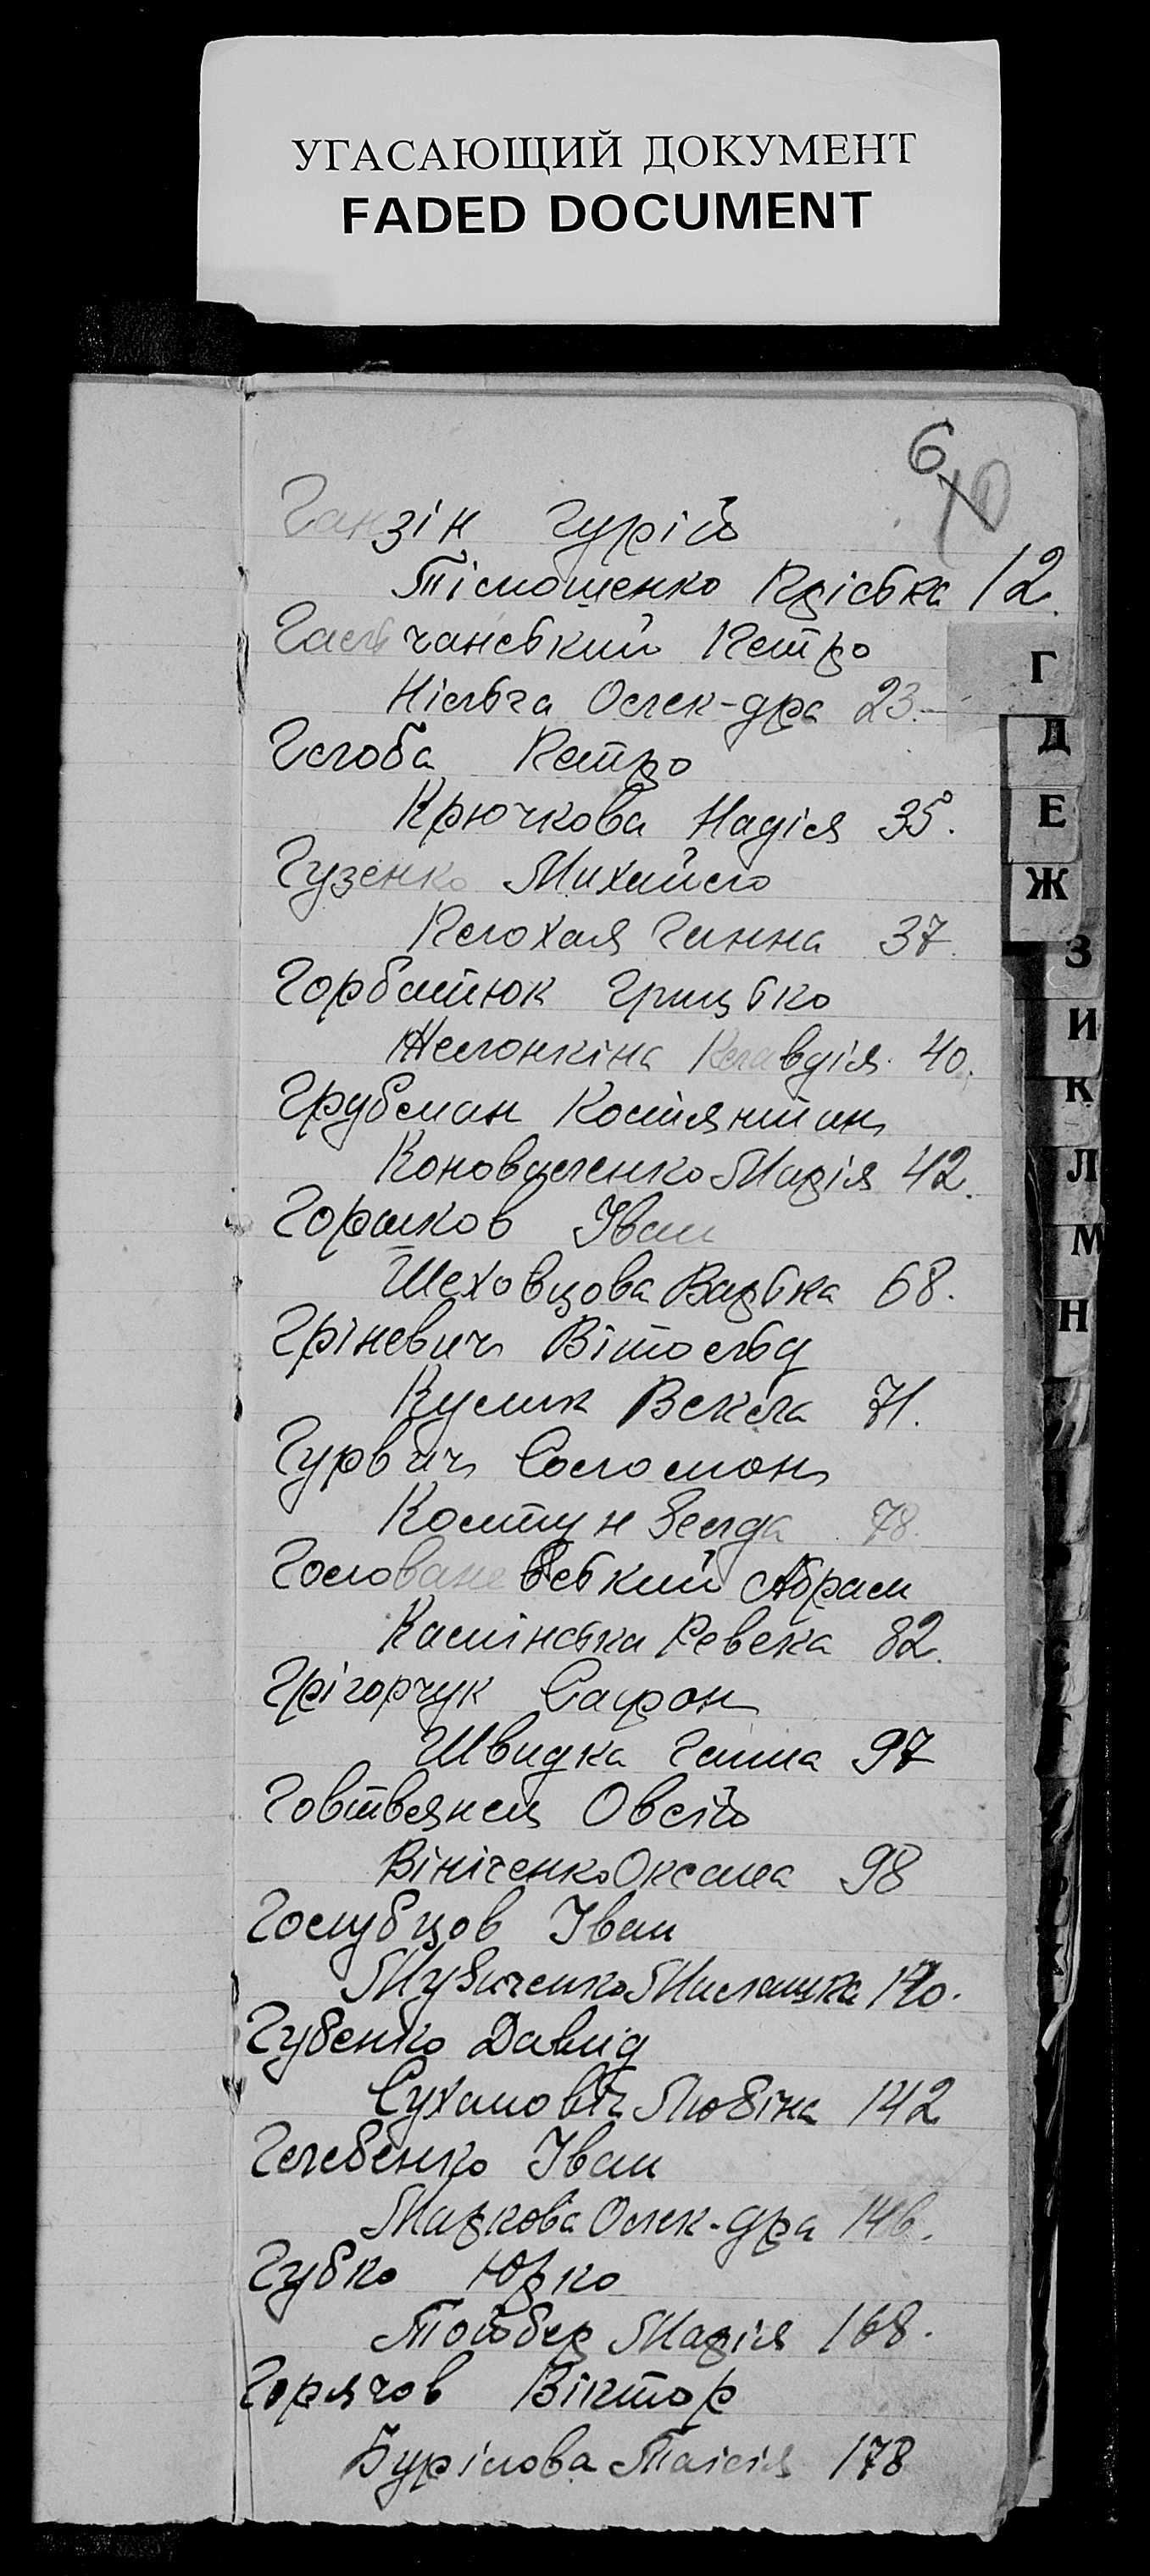 УГАСАЮЩИЙ ДОКУМЕНТ
FADED DOCUMENT
6
10
Ганзін Гурій
Тімошенко Христя 12.
Гальчанський Петро
Нільга Олек-дра 23.
Г
Глоба Петро
Д
Крючкова Надія 35.
Е
Гузенко Михайло
Ж
Плохая Ганна 37.
З
Горбатюк Грицько
И
Желонкіна Клавдія 40.
К
Грубман Костянтин
Коноваленко Марія 42.
Л
Горшков Іван
М
Шеховцова Варька 68.
Н
Гріневич Вітольд
Кулик Векла 71.
Гурвич Соломон
Колтун Зелда 78.
Голованевський Абрам
Камінська Ревека 82.
Грігорчук Сафрон
Швидка Ганна 97
Говтвянец Овсій
Вініченко Оксана 98
Голубцов Іван
Мубиченко Милашка 140.
Губенко Давид
Сухановіч Любіна 142
Глебенко Іван
Маркова Олек-дра 146.
Губко Юрко
Тойбер Марія 168.
Горячов Віктор
Бурімова Таісія 178